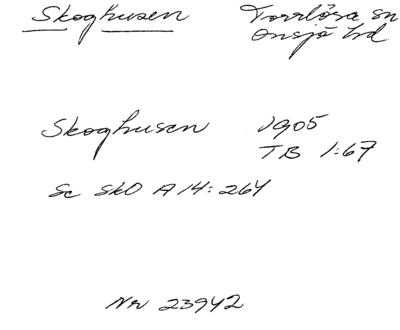 Skoghusen Torrlösa sn
Onsjö hd
Skoghusen 1905
TB 1:67
Sc SkO A 14: 264
Nr 23942